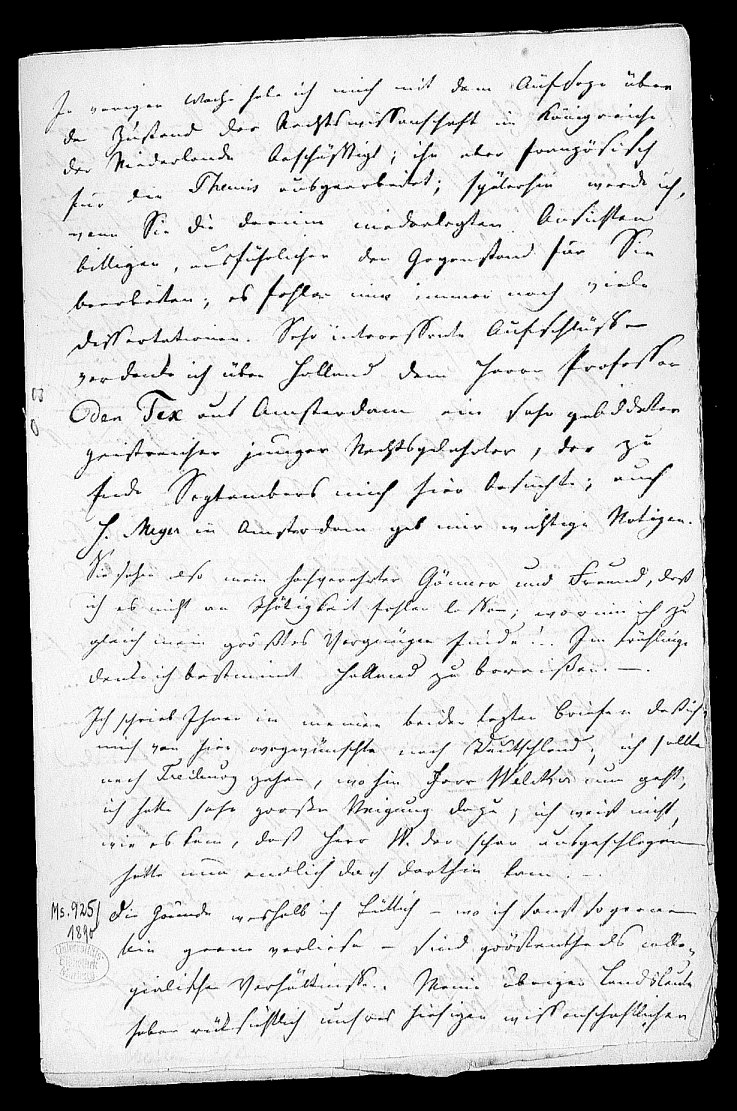 In voriger Woche habe ich mich mit dem Aufsatze über
de Zustand der Rechtswissenschaft im Königreiche
der Niederlande beschäftigt; ihn aber französisch
für die Themis ausgearbeitet; späterhin werde ich,
wenn Sie die darin niedergelegten Ansichten
billigen, ausführlicher den Gegenstand für Sie
bearbeiten; es fehlen mir immer noch viele
Dissertationen. Sehr interessante Aufschlüsse
verdanke ich über Holland dem Herrn Professor
Den Tex aus Amsterdam ein sehr gebildeter
geistreicher junger Rechtsgelehrter, der zu
Ende Septembers mich hier besuchte; auch
H. Meyer in Amsterdam gab mir wichtige Notizen.
Sie sehen also mein hochverehrter Gönner und Freund, daß
ich es nicht an Thätigkeit fehlen lasse; worin ich zu
gleich mein größtes Vergnügen finde! Im Frühlinge
denke ich bestimmt Holland zu bereisen. —
Ich schrieb Ihnen in meinen beiden letzten Briefen daß ich
mich von hier wegwünschte nach Deutschland; ich sollte
nach Freiburg gehen, wohin Herr Welcker nun geht;
ich hatte sehr große Neigung dazu; ich weiß nicht,
wie es kam, daß Herr W. der schon ausgeschlagen
hatte nun endlich doch dorthin kam.
Die Gründe weshalb ich Lüttich – wo ich sonst so gerne
bin gerne verließe – sind größtentheils colle-
gialische Verhältnisse. Meine übrigen Landsleute
haben rücksichtlich unsres hiesigen wissenschaftlichen
Ms. 925/
1890